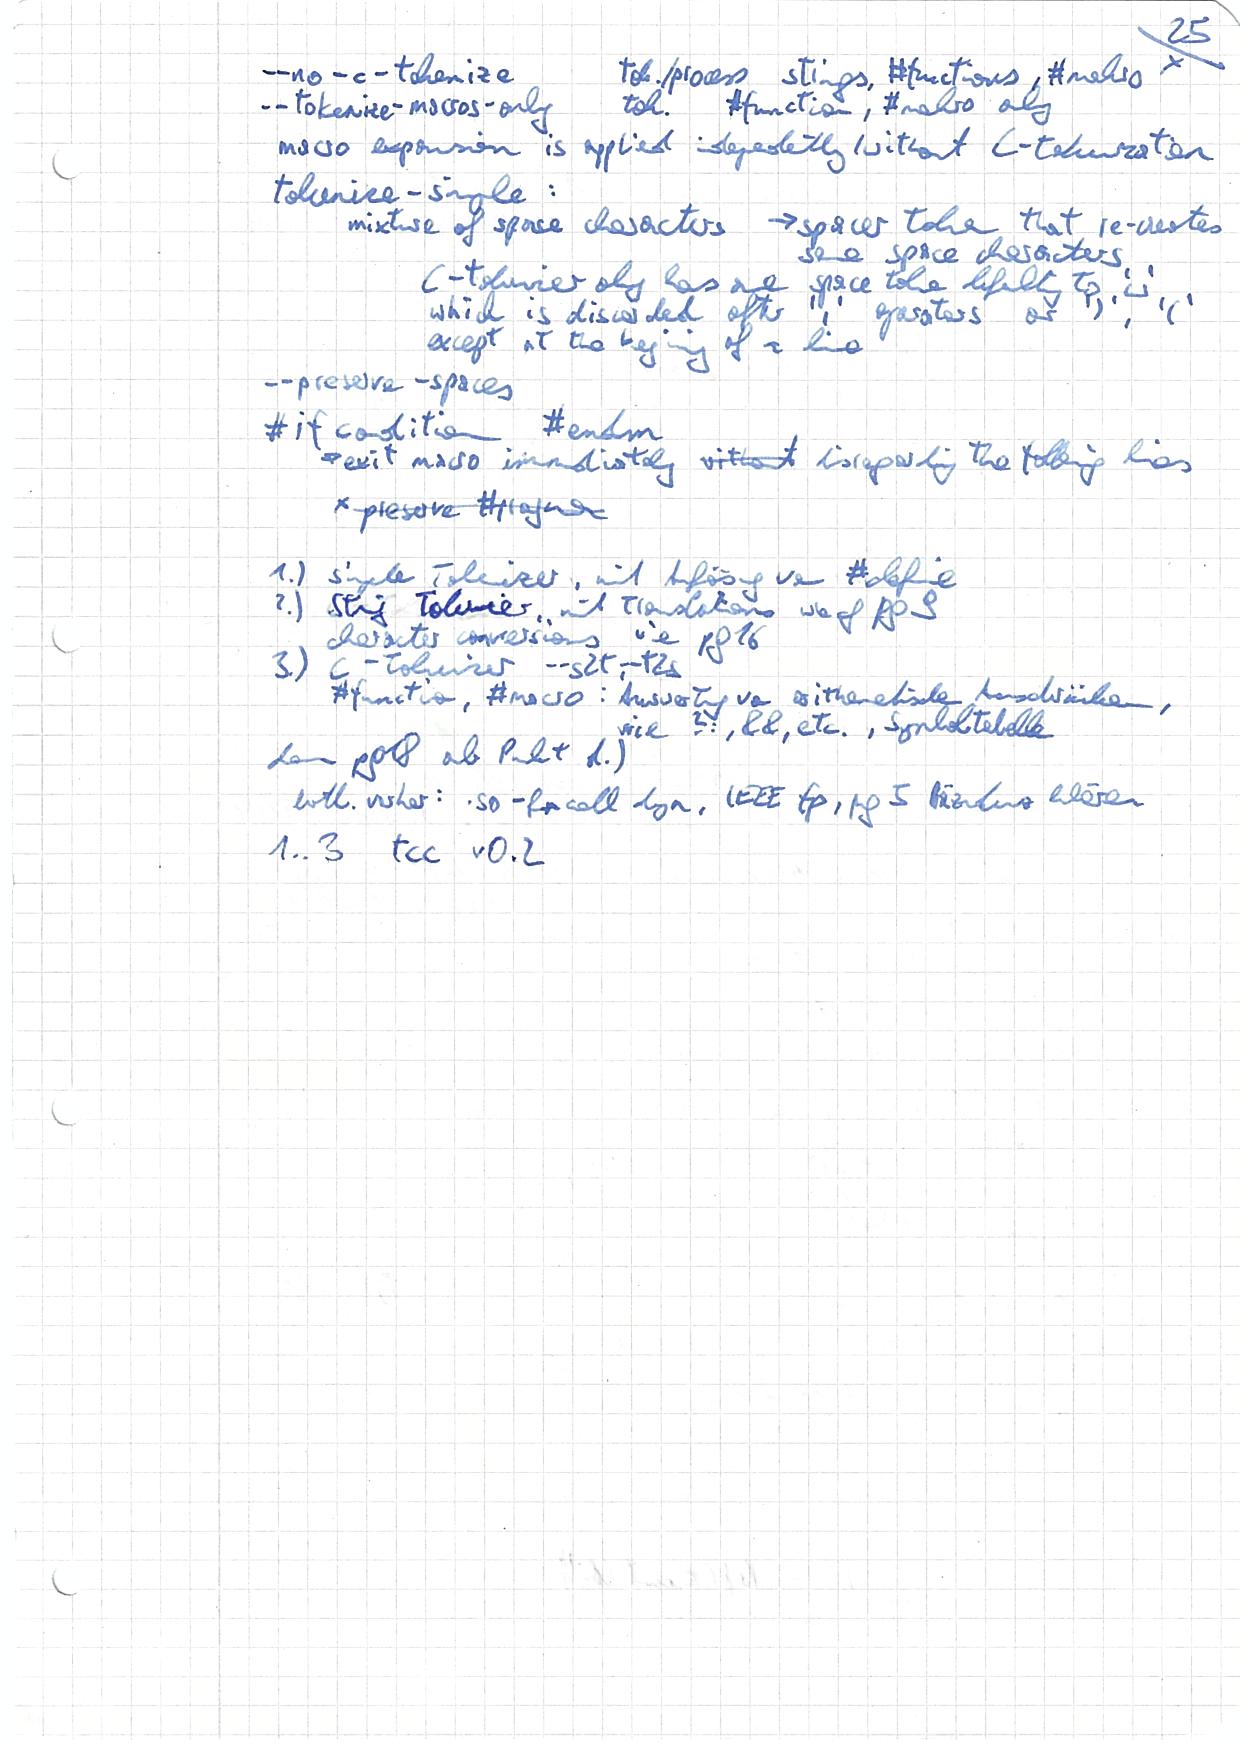 25
--no-c-tokenize tok./process stings, #functions, #makro
--tokenize-macros-only tok. #function, #makro only
macro expansion is applied indepedetly/without C-tokenization
tokenize-simple :
mixture of space characters → spacer token that re-creates
same space characters
C-tokenizer only has one space token defaulting to
which is discarded after ',' operators or ')', '('
except at the begining of a line
--preserve-spaces
#if condition #endm
⇒ exit macro immediately without disregarding the following lines
x preserve #pragma
1.) simple Tokenizer, mit Auflösung von #define
2.) String Tokenizer, mit Translations pg 9
character conversions wie pg 16
3.) C-Tokenizer --s2t, -t2s
#function, #macro : Auswertung von arithmetische Ausdrücken,
wie ?:, &&, etc., Symboltabelle
dann pg 18 ab Punkt 1.)
evtl. vorher: .so - dyn, IEEE fp, pg 5 klären
1..3 tcc v0.2